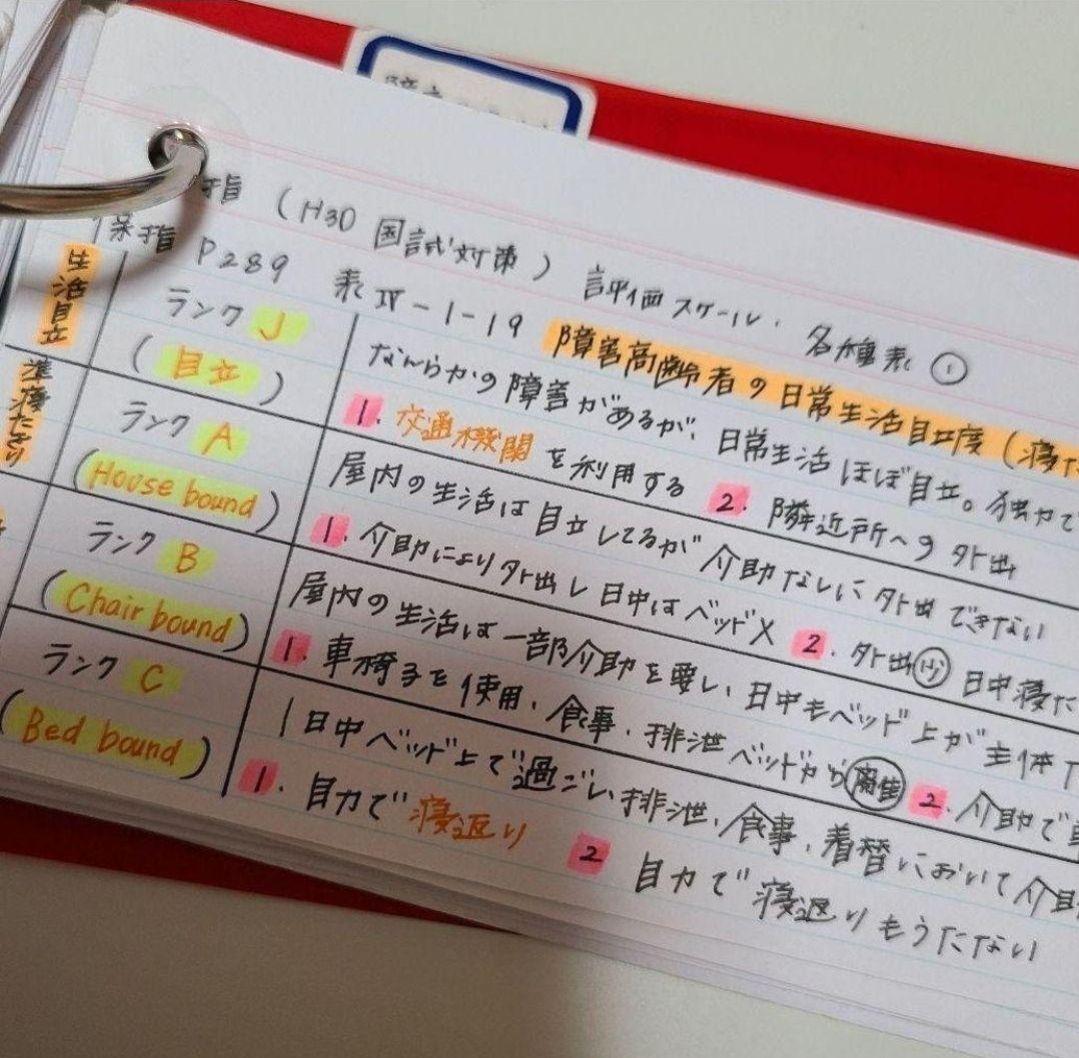 指 (H30 国試対策) 評価スケール・各種表 ①
保指 P289 表Ⅳ-1-19 障害高齢者の日常生活自立度(寝た
生活自立
ランク J
(自立)
なんらかの障害があるが、日常生活ほぼ自立。独力で
1. 交通機関を利用する 2. 隣近所への外出
準寝たきり
ランク A
(House bound)
屋内の生活は自立してるが介助なしに外出できない
1. 介助により外出し日中はベッド× 2. 外出 日中寝た
ランク B
(Chair bound)
屋内の生活は一部介助を要し、日中もベッド上が主体
1. 車椅子を使用、食事、排泄ベッドから離れ 2. 介助で
ランク C
(Bed bound)
1日中ベッド上で過ごし、排泄、食事、着替において介
1. 自力で寝返り 2 自力で寝返りもうたない